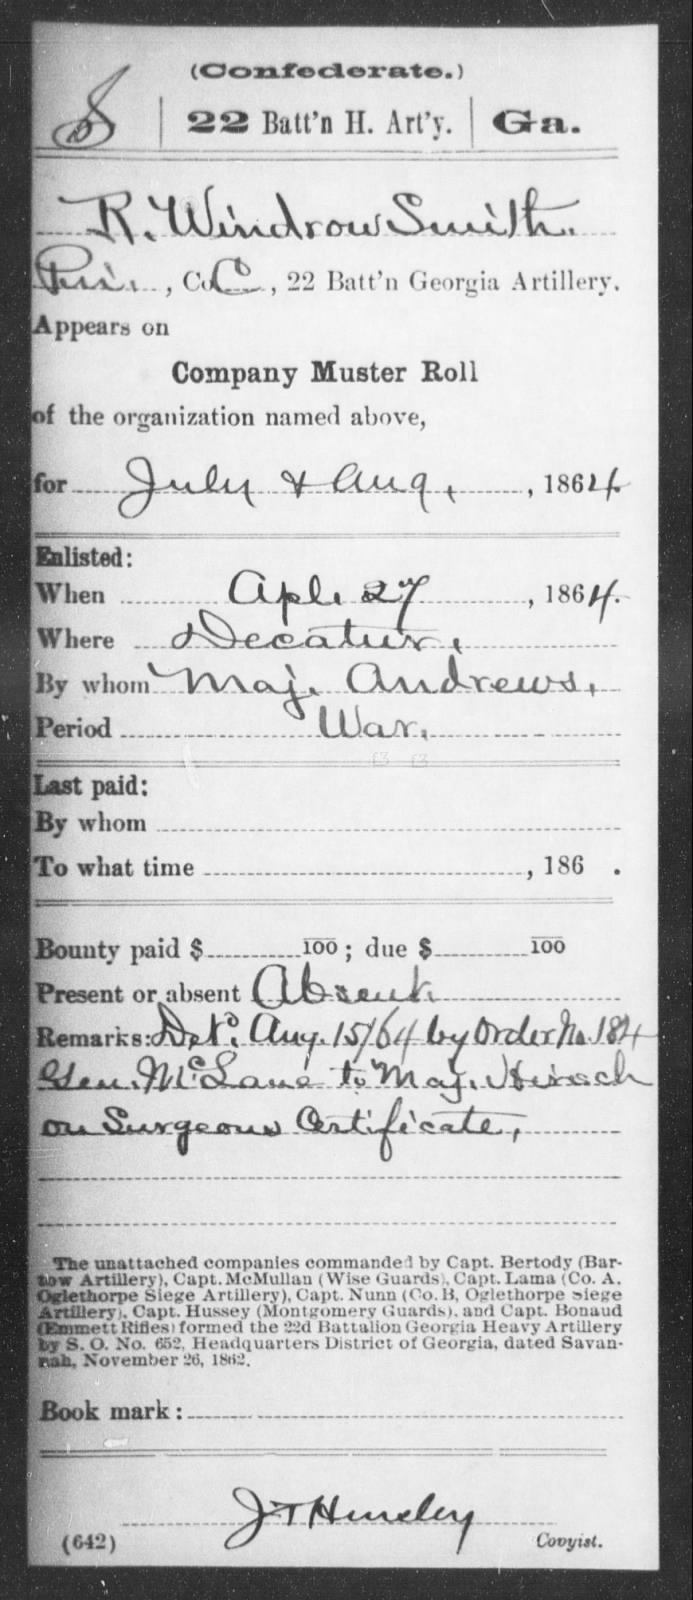 (Confederate.)
S | 22 Batt'n H. Art'y. | Ga.
R. Windrow Smith.
Pri., Co. C, 22 Batt'n Georgia Artillery.
Appears on
Company Muster Roll
of the organization named above,
for July & Aug, , 1864
Enlisted:
When Apl. 27, 1864.
Where Decatur,
By whom Maj. Andrews,
Period War.
Last paid:
By whom
To what time , 186 .
Bounty paid $ 100; due $ 100
Present or absent Absent.
Remarks: Det. Aug. 15/64 by Order No. 184
Gen. McLane to Maj. Hirsch
on Surgeons Certificate,
The unattached companies commanded by Capt. Bertody (Bar-
tow Artillery), Capt. McMullan (Wise Guards), Capt. Lama (Co. A,
Oglethorpe Siege Artillery), Capt. Nunn (Co. B, Oglethorpe Siege
Artillery), Capt. Hussey (Montgomery Guards), and Capt. Bonaud
(Emmett Rifles) formed the 22d Battalion Georgia Heavy Artillery
by S. O. No. 652, Headquarters District of Georgia, dated Savan-
nah, November 26, 1862.
Book mark:
J T Hursley
(642) Copyist.